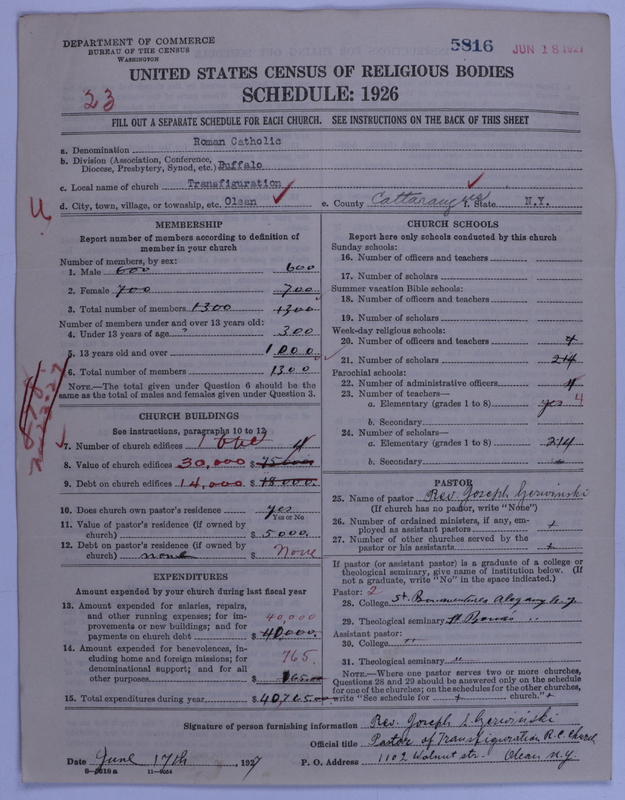 DEPARTMENT OF COMMERCE
BUREAU OF THE CENSUS
WASHINGTON
5816
JUN 18 1927
UNITED STATES CENSUS OF RELIGIOUS BODIES
SCHEDULE: 1926
23
FILL OUT A SEPARATE SCHEDULE FOR EACH CHURCH. SEE INSTRUCTIONS ON THE BACK OF THIS SHEET
a. Denomination Roman Catholic
b. Division (Association, Conference, Diocese, Presbytery, Synod, etc.) Buffalo
c. Local name of church Transfiguration
d. City, town, village, or township, etc. Olean e. County Cattaraugus f. State N.Y.
MEMBERSHIP
Report number of members according to definition of
member in your church
Number of members, by sex:
1. Male 600 600
2. Female 700 700
3. Total number of members 1300 1300
Number of members under and over 13 years old:
4. Under 13 years of age 300
5. 13 years old and over 1000
6. Total number of members 1300
NOTE.—The total given under Question 6 should be the
same as the total of males and females given under Question 3.
CHURCH BUILDINGS
See instructions, paragraphs 10 to 12
7. Number of church edifices 1 one
8. Value of church edifices 30,000 $ 75000
9. Debt on church edifices 14,000 $ 18000
10. Does church own pastor's residence yes
Yes or No
11. Value of pastor's residence (if owned by
church) $ 5000
12. Debt on pastor's residence (if owned by
church) none $ None
EXPENDITURES
Amount expended by your church during last fiscal year
13. Amount expended for salaries, repairs,
and other running expenses; for im-
provements or new buildings; and for 40,000
payments on church debt $ 40,000
14. Amount expended for benevolences, in-
cluding home and foreign missions; for 765.
denominational support; and for all
other purposes $ 765.00
15. Total expenditures during year $ 40,765.00
CHURCH SCHOOLS
Report here only schools conducted by this church
Sunday schools:
16. Number of officers and teachers
17. Number of scholars
Summer vacation Bible schools:
18. Number of officers and teachers
19. Number of scholars
Week-day religious schools:
20. Number of officers and teachers 4
21. Number of scholars 214
Parochial schools:
22. Number of administrative officers 4
23. Number of teachers—
a. Elementary (grades 1 to 8) yes 4
b. Secondary
24. Number of scholars—
a. Elementary (grades 1 to 8) 214
b. Secondary
PASTOR
25. Name of pastor Rev. Joseph Gerwinski
(If church has no pastor, write "None")
26. Number of ordained ministers, if any, em-
ployed as assistant pastors
27. Number of other churches served by the
pastor or his assistants
If pastor (or assistant pastor) is a graduate of a college or
theological seminary, give name of institution below. (If
not a graduate, write "No" in the space indicated.)
Pastor: 2
28. College St. Bonaventures Allegany N.Y.
29. Theological seminary St. Bonas "
Assistant pastor:
30. College "
31. Theological seminary "
NOTE.—Where one pastor serves two or more churches,
Questions 28 and 29 should be answered only on the schedule
for one of the churches; on the schedules for the other churches,
write "See schedule for church."
Signature of person furnishing information Rev. Joseph L. Gerwinski
Official title Pastor of Transfiguration R.C. Church
Date June 17th, 1927 P. O. Address 1102 Walnut str. Olean N.Y.
8-5618a 11-9054